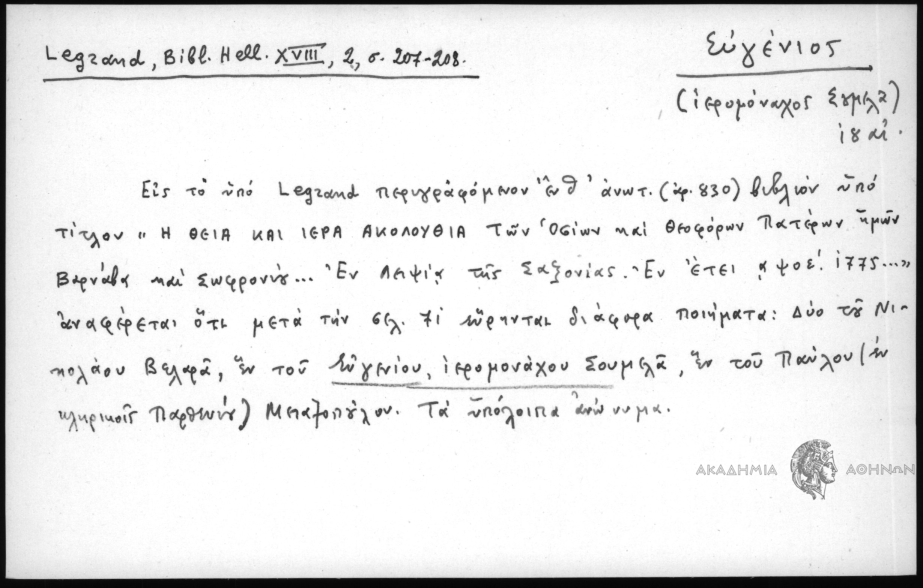 Legrand, Bibl. Hell. XVIII, 2, σ. 207-208.
Εὐγένιος
(ἱερομόναχος Σουμελᾶ)
ιη' αἰ.
Εἰς τὸ ὑπό Legrand περιγραφόμενον ἔνθ' ἀνωτ. (ἀρ. 830) βιβλίον ὑπό
τίτλον „ Η ΘΕΙΑ ΚΑΙ ΙΕΡΑ ΑΚΟΛΟΥΘΙΑ Τῶν Ὁσίων καί Θεοφόρων Πατέρων ἡμῶν
Βαρνάβα καί Σωφρονίου... Ἐν Λειψίᾳ τῆς Σαξονίας. Ἐν ἔτει ͵αψοε'. 1775...."
ἀναφέρεται ὅτι μετά τήν σελ. 71 εὕρηνται διάφορα ποιήματα: Δύο τοῦ Νι-
κολάου Βελαρᾶ, ἕν τοῦ Εὐγενίου, ἱερομονάχου Σουμελᾶ, ἕν τοῦ Παύλου (ἐν
κληρικοῖς Παρθενίου) . Τά ὑπόλοιπα ἀνώνυμα.
ΑΚΑΔΗΜΙΑ ΑΘΗΝΩΝ